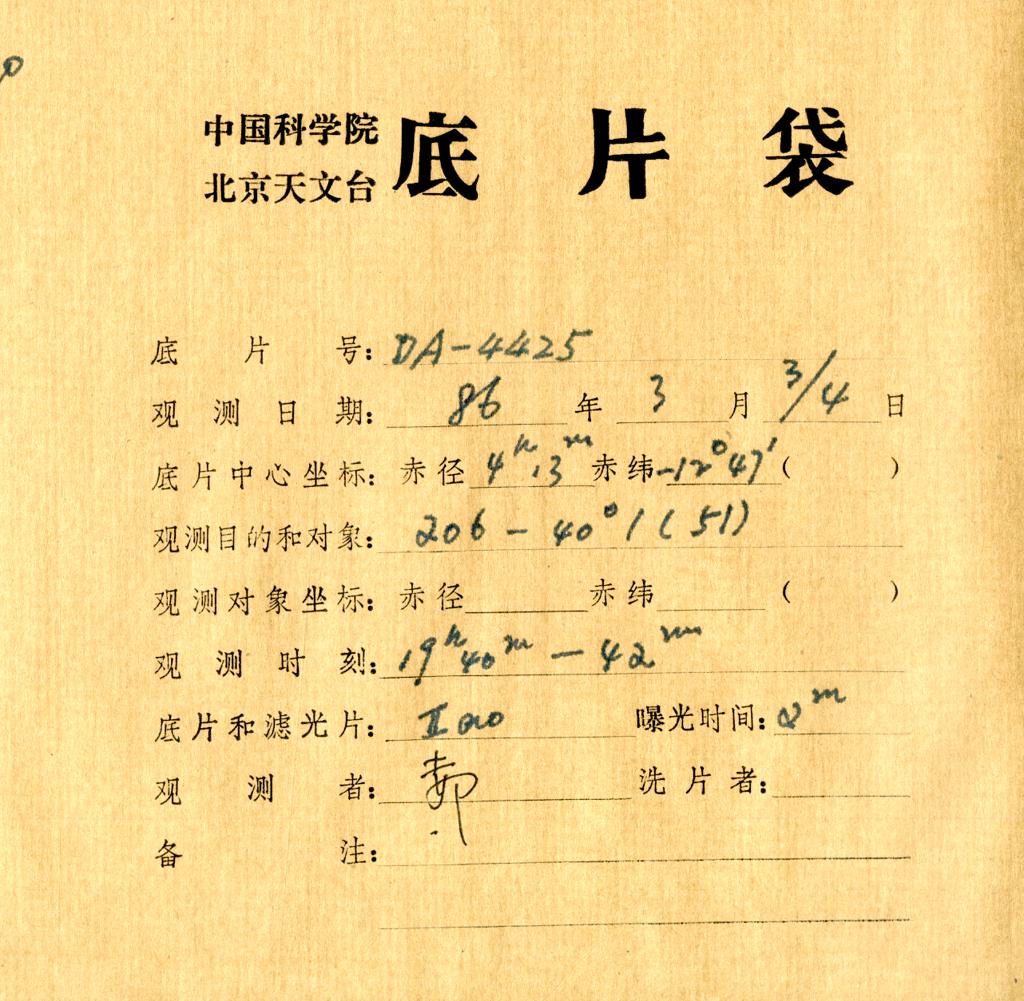 中国科学院
北京天文台
底片袋
底片号: DA-4425
观测日期: 86 年 3 月 3/4 日
底片中心坐标: 赤径 4ʰ13ᵐ 赤纬 -12°47′ ( )
观测目的和对象: 206-40°1(51)
观测对象坐标: 赤径 赤纬 ( )
观测时刻: 19ʰ40ᵐ-42ᵐ
底片和滤光片: IIaO 曝光时间: 2ᵐ
观测者: 洗片者:
备注: